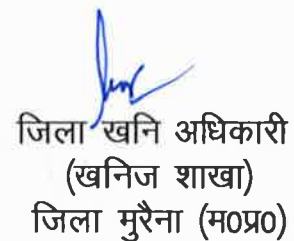 जिला खनि अधिकारी
(खनिज शाखा)
जिला मुरैना (म0प्र0)